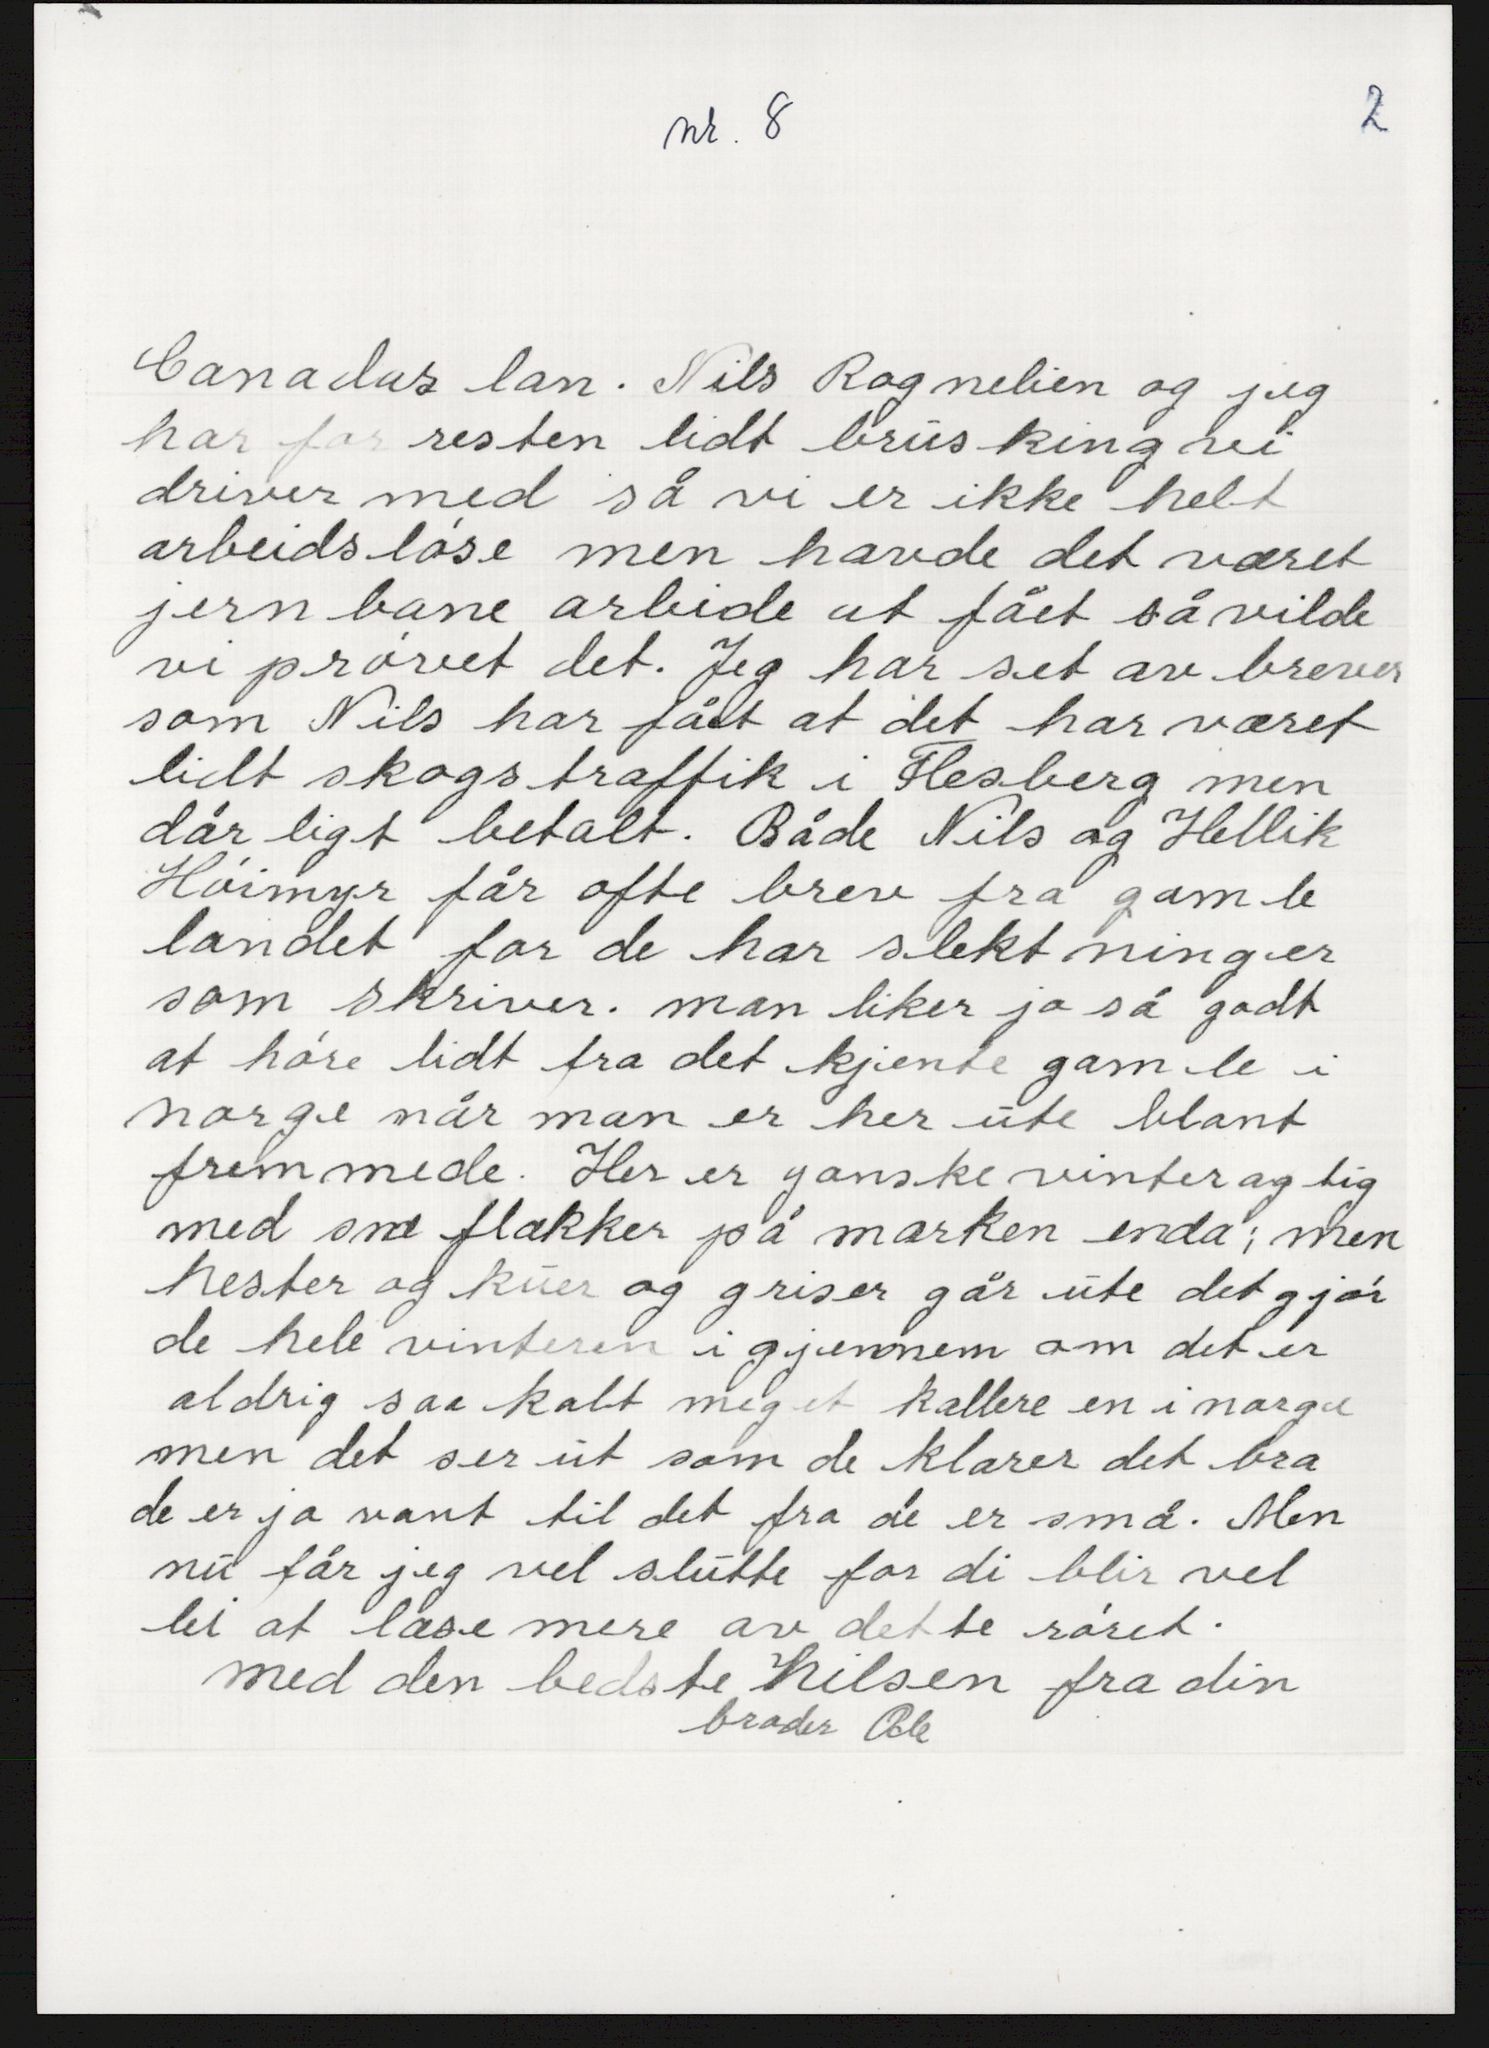 nr. 8
2
Canadas lan. Nils Rognelien og jeg
har for resten lidt brüsking vi
driver med så vi er ikke helt
arbeidslóse men havde det været
jern bane arbeide at fået så vilde
vi próvet det. Jeg har set av brever
som Nils har fåt at det har været
lidt skogstraffik i Flesberg men
dår ligt betalt. Både Nils og Hellik
Hóimyr får ofte brev fra gamle
landet for de har slektninger
som skriver. man liker jo så godt
at hóre lidt fra det kjente gamle i
norge når man er her üte blant
fremmede. Her er ganske vinteragtig
med snø flækker på marken enda; men
hester og küer og griser går üte det gjór
de hele vinteren igjennem om det er
aldrig saa kalt meget kallere en i norge
men det ser üt som de klarer det bra
de er jo vant til det fra de er små. Men
nü får jeg vel slütte for di blir vel
lei at læse mere av dette róret.
med den bedste hilsen fra din
broder Ole